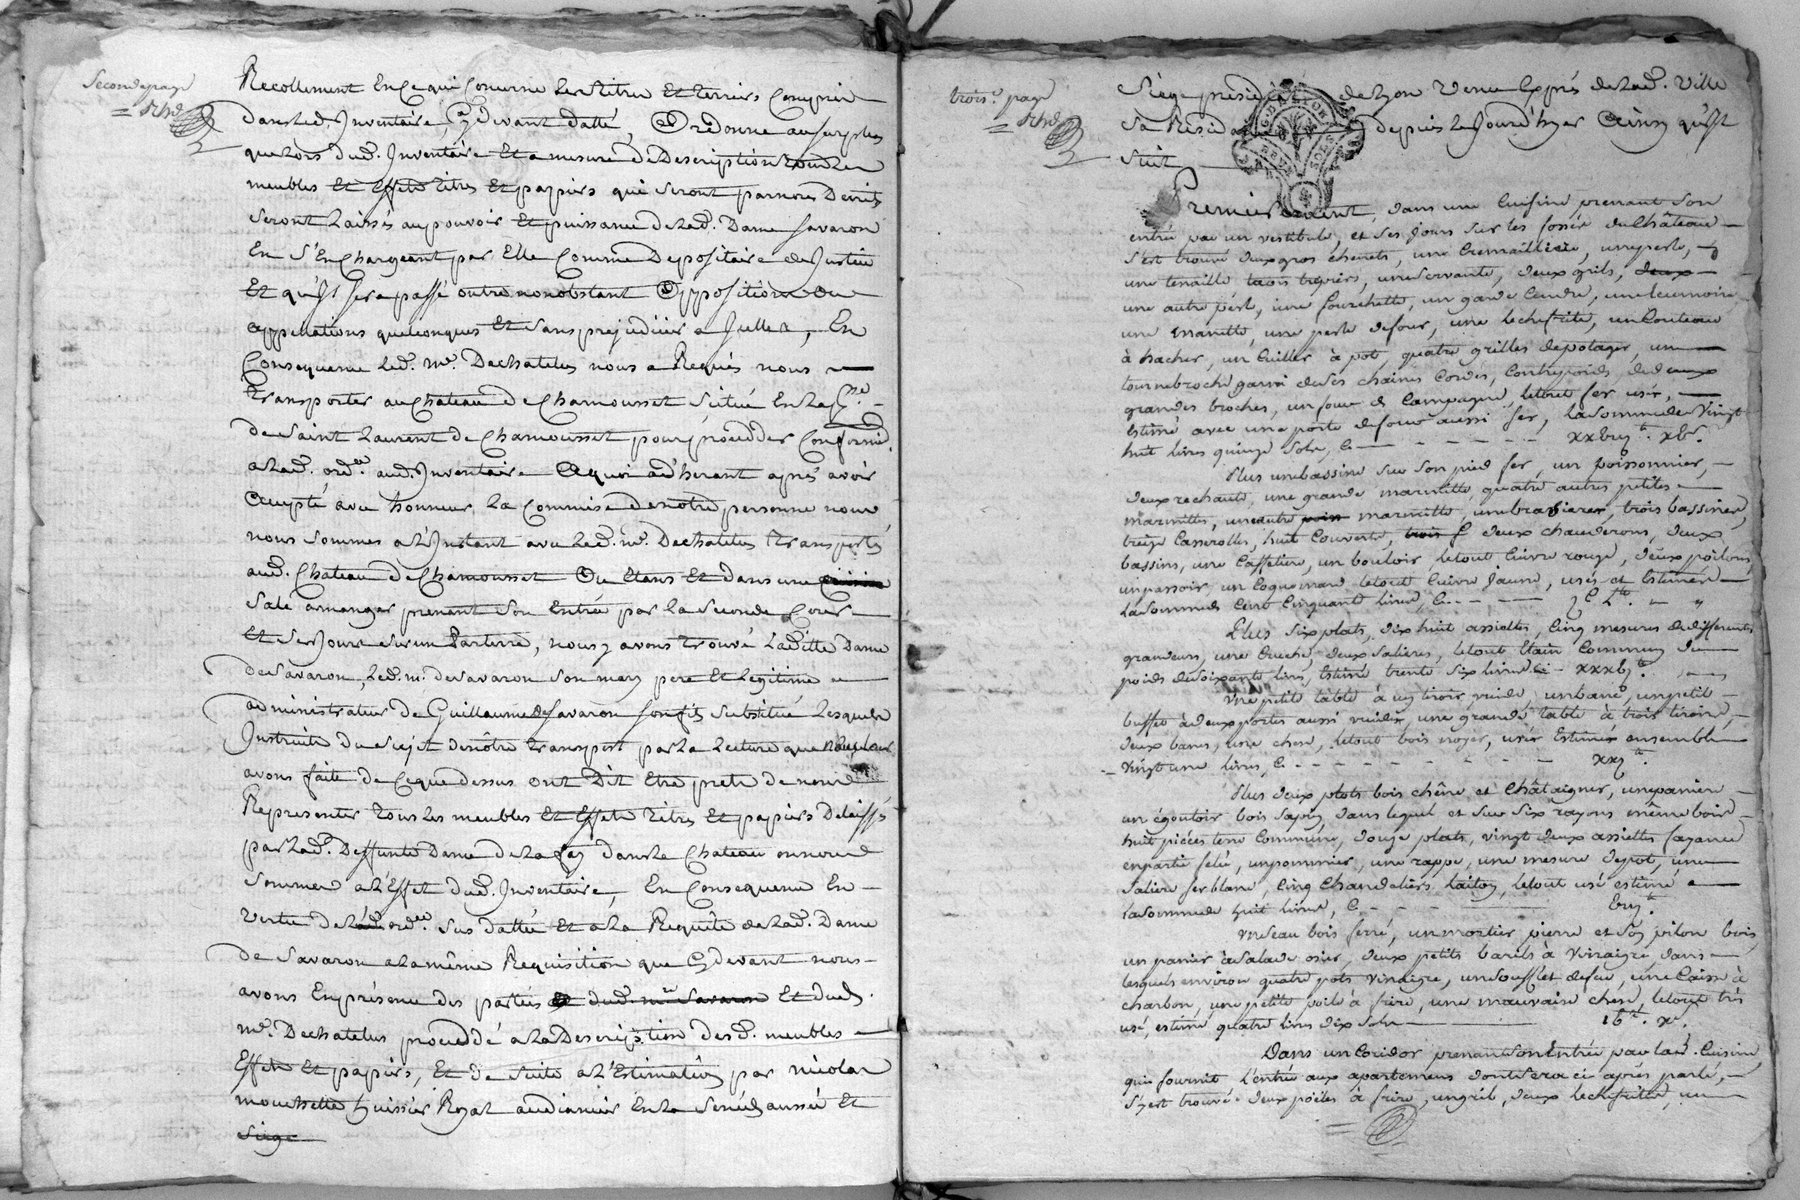 Seconde page
Recollement En Ce qui Concerne Les titres Et terriers Compris
dans led. Inventaire, Cydevant datté, Et ordonne au surplus
que lors dud. Inventaire Et a mesure de Description tous Les
meubles Et Effets titres Et papiers qui seront par nous Decrits
seront Laissés au pouvoir Et puissance de lad. Dame Savaron
En S'En Chargeant par Elle Comme Depositaire de Justice
Et qu'Jl sera passé outre nonobstant Oppositions ou
appellations quelconques Et sans prejudicier a Jcelles, En
Consequence Led. Me. Dechatelus nous a Requis nous
transporter au Chateau de Chamousset scitué En La psse.
de Saint Laurent de Chamousset pour proceder Conformé.
a lad. ordce. aud. Inventaire a quoi adherant après avoir
accepté avec honneur La Commise de notre personne nous
nous sommes a L'Jnstant avec Led. Me. Dechatelus transportés
aud. Chateau de Chamousset Ou Etans Et dans une
Sale a manger prenant Son Entrée par la Seconde Cour
Et Ses Jours sur un Parterre, nous y avons trouvé Laditte Dame
de Savaron, Led. mr. de Savaron Son mary pere Et Legitime
administrateur de Guillaume de Savaron son fils Substitué Lesquels
Jnstruits du Sujet de nôtre transport par La Lecture que nous leur
avons faite de Ce que dessus ont Dit Etre prets de nous
Representer tous Les meubles Et Effets titres Et papiers Delaissés
par Lad. Deffunte Dame de La fay dans Le Chateau ou nous
Sommes a L'Effet dud. Jnventaire, En Consequence En
Vertu de lad. ordce. Sus dattée Et a La Requête de Lad. Dame
de Savaron a La même Requisition que Cydevant nous
avons En présence des parties Et dud. mr. Savaron Et dud.
Me. Dechatelus procedé a La Description desd. meubles
Effets Et papiers, Et de suite a L'Estimation par nicolas
mouchette huissier Royal audiancier En La Senéchaussée Et
Siège
trois.e page
Siège présidial de Lyon Venu Exprés de Lad. Ville
Sa Residence depuis Le Jour d'hyer Ainsy qu'Jl
Suit
Premierement, dans une Cuisine prenant Son
entrée par un vestibule, et Ses Jours Sur les fossés du Château
S'est trouvé deux gros chenets, une Cremailliere, une perle,
une tenaille trois trepiers, une servante, deux grils, deux
une autre perle, une fourchette, un garde Cendre, une ecumoire,
une manette, une perle de four, une lechefrite, un Couteau
à hacher, un Cuiller à pot, quatre grilles de potager, un
tournebroche garni de Ses chaines Cordes, Contrepoids, de deux
grandes broches, un four de Campagne, le tout fer usé,
Estimé avec une porte de four aussi fer, La Somme de Vingt
huit Livres quinze Sols, C. - - - - - xxbiij tt. xb s.
Plus une bassine Sur Son pied fer, un poissonnier,
deux rechauts, une grande marmitte, quatre autres petites
marmittes, une autre marmitte, une brasiere, trois bassines,
treize Casserolles, huit Couverts, trois deux chauderons, deux
bassins, une Caffetiere, un bouloir, le tout Cuivre rouge, deux poilons,
un passoir, un Coquemard le tout Cuivre Jaune, usés et Estimés
La Somme de Cent Cinquante Livres, C. - - - -
Plus Six plats, dix huit assiettes, Cinq mesures de differentes
grandeurs, une Cruche, deux Salieres, le tout Etain Commun du
poids de Soixante Livres, Estimé trente Six Livres C. xxxbj tt.
Une petite table à un tiroir vuide, un banc, un petit
buffet à deux portes aussi vuides, une grande table à trois tiroirs,
deux bancs, une chese, le tout bois noyer, usés Estimés ensemble
Vingt une Livres, C. - - - - - - - xxj tt.
Plus deux plots bois chêne et Châtaigner, une paniere
un égoutoir bois Sapin, dans lequel et Sur Six rayons même bois
huit pièces terre Commune, douze plats, vingt deux assiettes fayance
en partie felé, un poivrier, une rappe, une mesure depot, une
Saliere fer blanc, Cinq Chandeliers Laiton, le tout usé estimé
La Somme de huit Livres, C. - - - - - biij tt.
Un Seau bois ferré, un mortier pierre et Son pilon bois,
un panier à Salade osier, deux petits barils à Vinaigre, dans
lesquels environ quatre pots Vinaigre, un Soufflet de feu, une Caisse à
charbon, une petite poile à frire, une mauvaise chese, le tout très
usé, estimé quatre Livres dix Sols
Dans un Coridor prenant Son Entrée par lad. Cuisine
qui fournit l'entrée aux apartemens dont Sera ci aprés parlé,
S'y est trouvé deux poëles à frire, un gril, deux lechefrittes, un